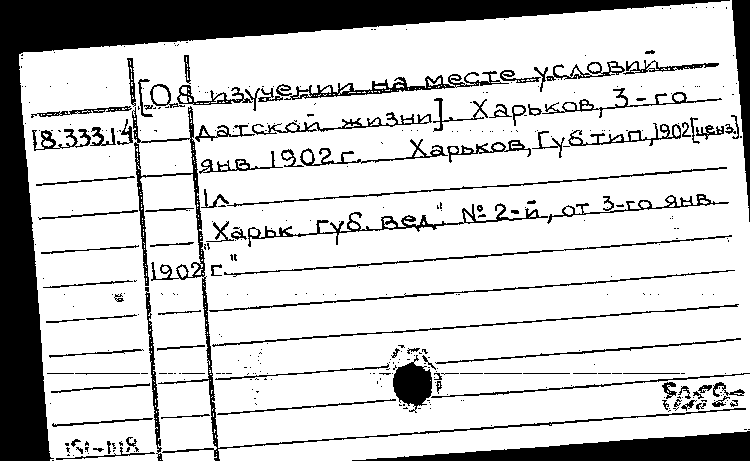 [Об изучении на месте условий
18.333.14 датской жизни]. Харьков, 3-го
янв. 1902 г. Харьков, Губ. тип., 1902 [ценз]
1 л.
"Харьк. губ. вед." № 2-й, от 3-го янв.
1902 г."